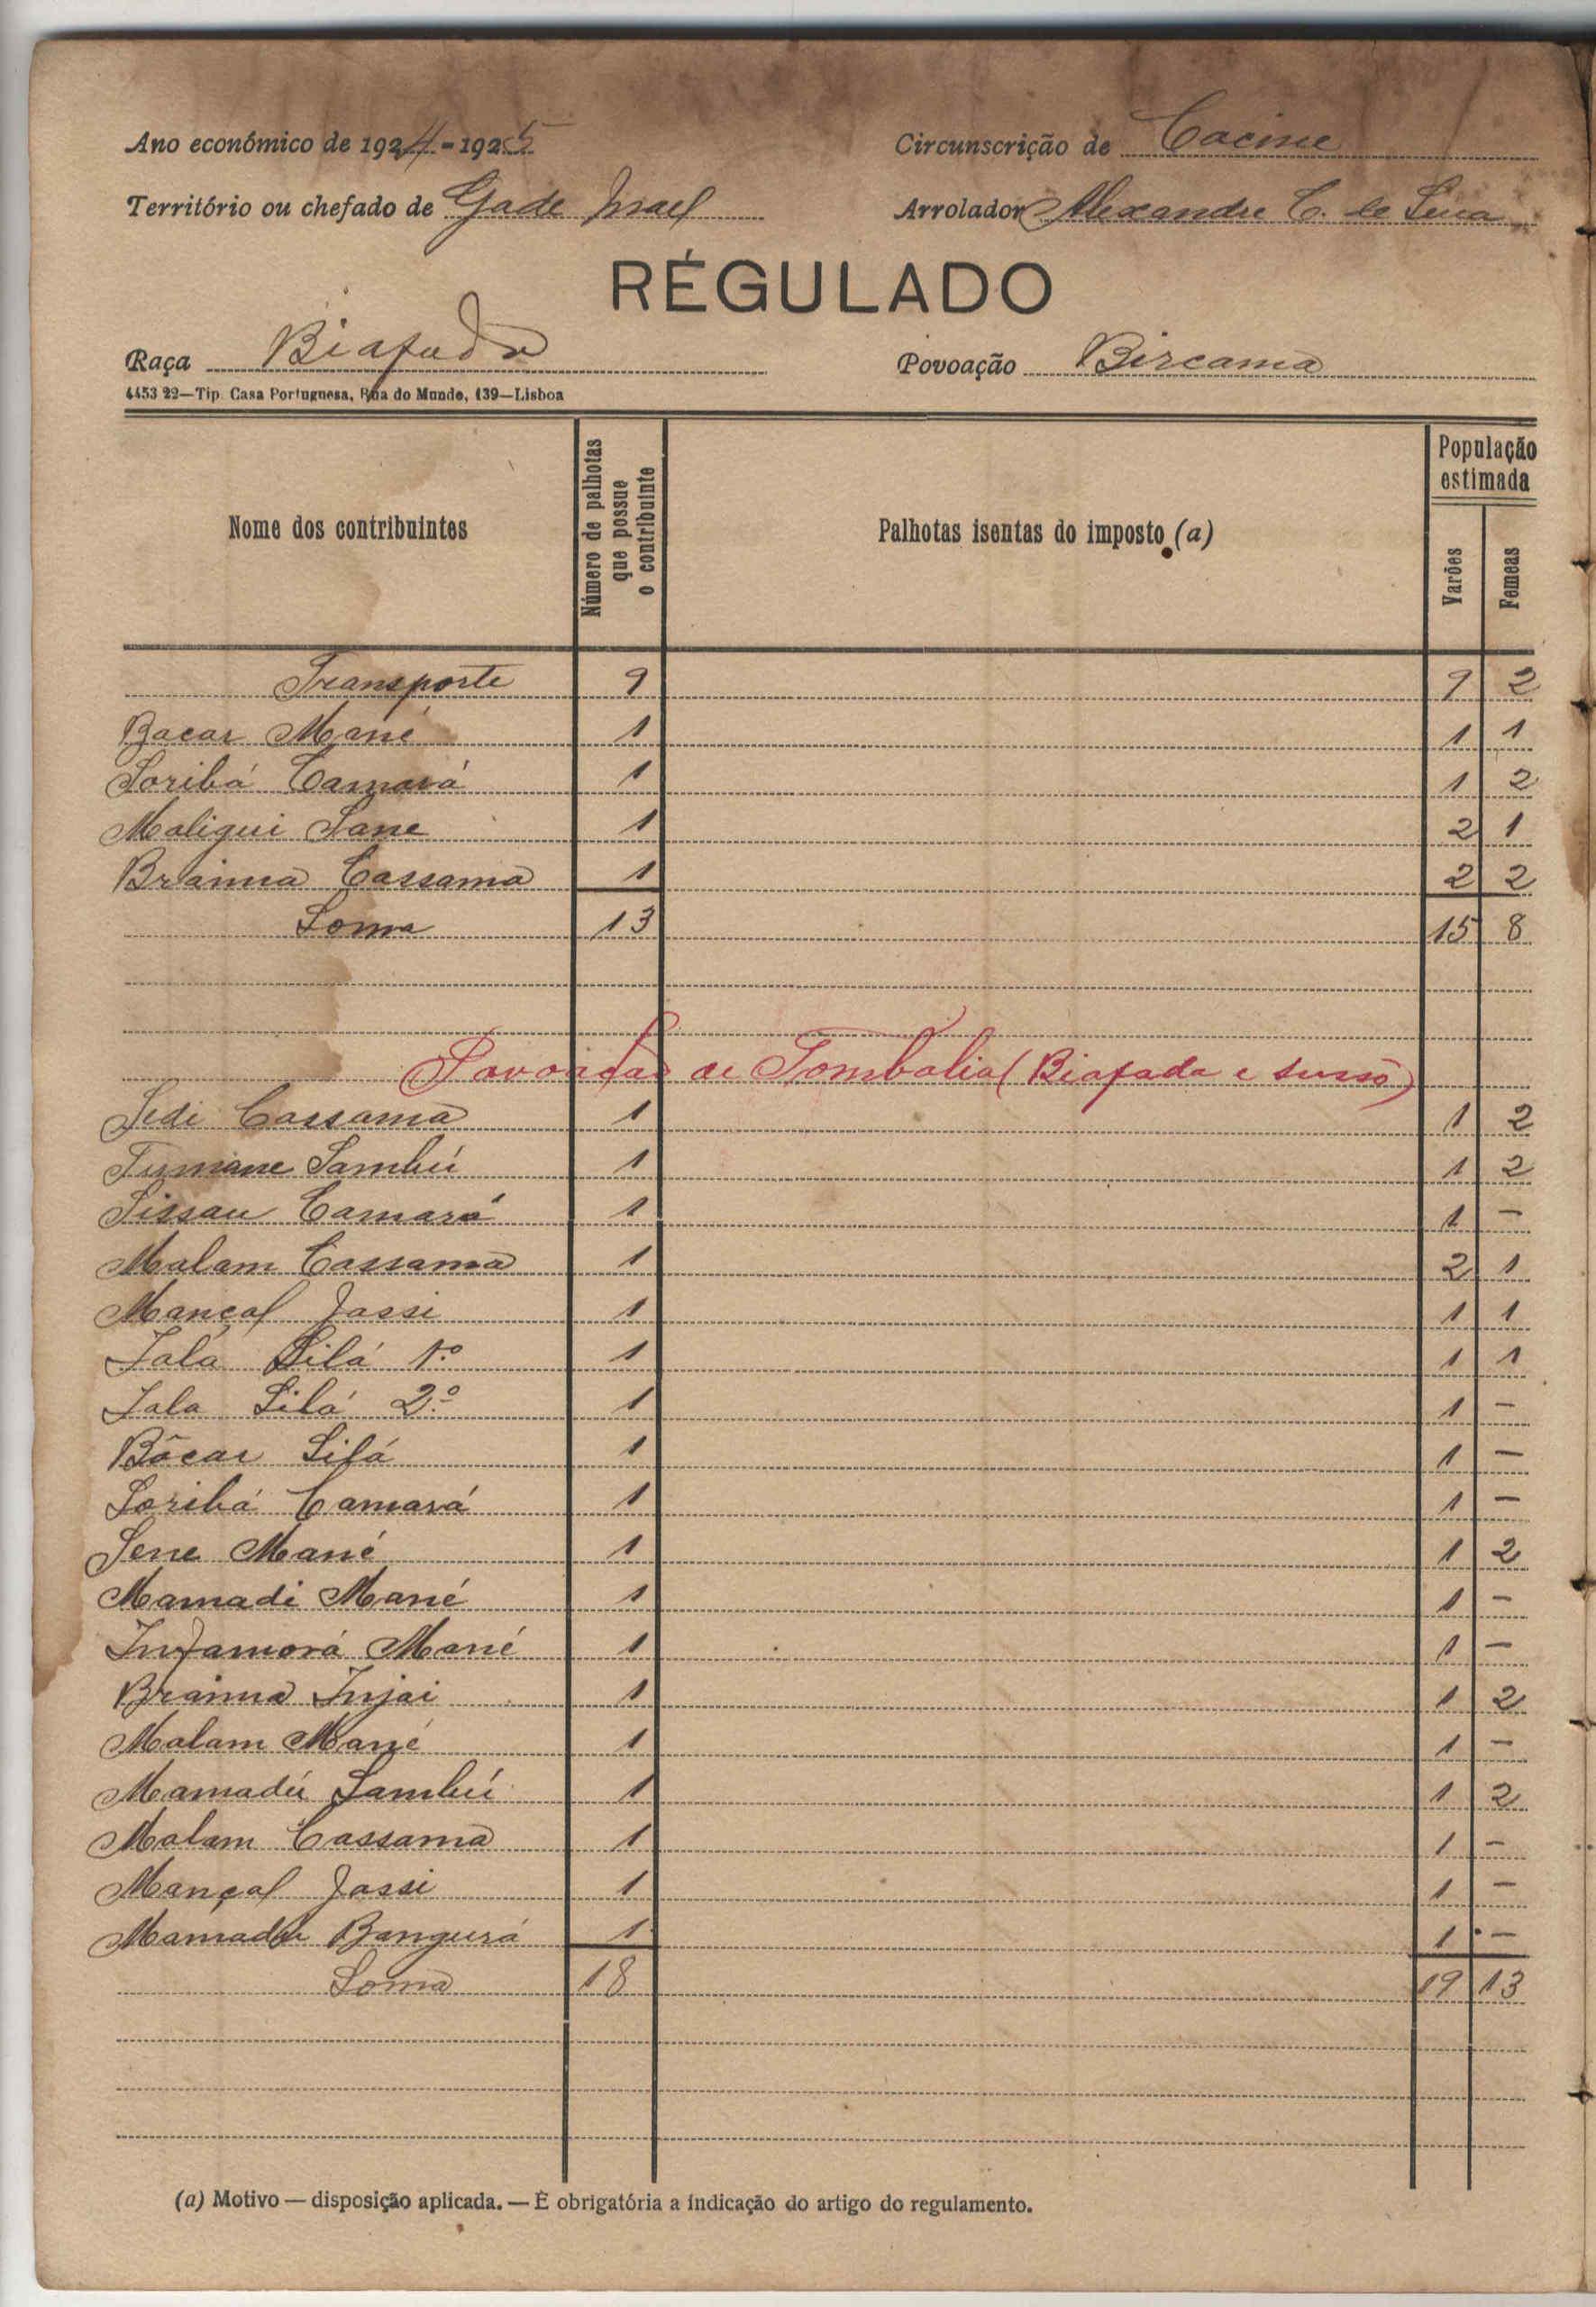 Ano económico de 1924-1925
Circunscrição de Cacine
Território ou chefado de Gade Israel
Arrolador Alexandre C. de Sena
RÉGULADO
Raça Biafada
Povoação Bircama
4453 22—Tip. Casa Portuguesa, Rua do Mundo, 139—Lisboa
Nome dos contribuintes
Número de palhotas que possue o contribuinte
Palhotas isentas do imposto (a)
População estimada
Varões
Femeas
Transporte 9 9 2
Bacar Mané 1 1 1
Soribá Camará 1 1 2
Maligui Sane 1 2 1
Braima Cassama 1 2 2
Soma 13 15 8
Povoação de Tombalia (Biafada e susso)
Sedi Cassama 1 1 2
Tumane Sambú 1 1 2
Sissau Camará 1 1 -
Malam Cassama 1 2 1
Mançal Jassi 1 1 1
Jala Silá 1.º 1 1 1
Jala Silá 2.º 1 1 -
Bácar Silá 1 1 -
Soribá Camará 1 1 -
Sene Mané 1 1 2
Mamadi Mané 1 1 -
Infamorá Mané 1 1 -
Braima Injai 1 1 2
Malam Mané 1 1 -
Mamadú Sambú 1 1 2
Malam Cassama 1 1 -
Mançal Jassi 1 1 -
Mamadu Bangurá 1 1 -
Soma 18 19 13
(a) Motivo — disposição aplicada. — É obrigatória a indicação do artigo do regulamento.